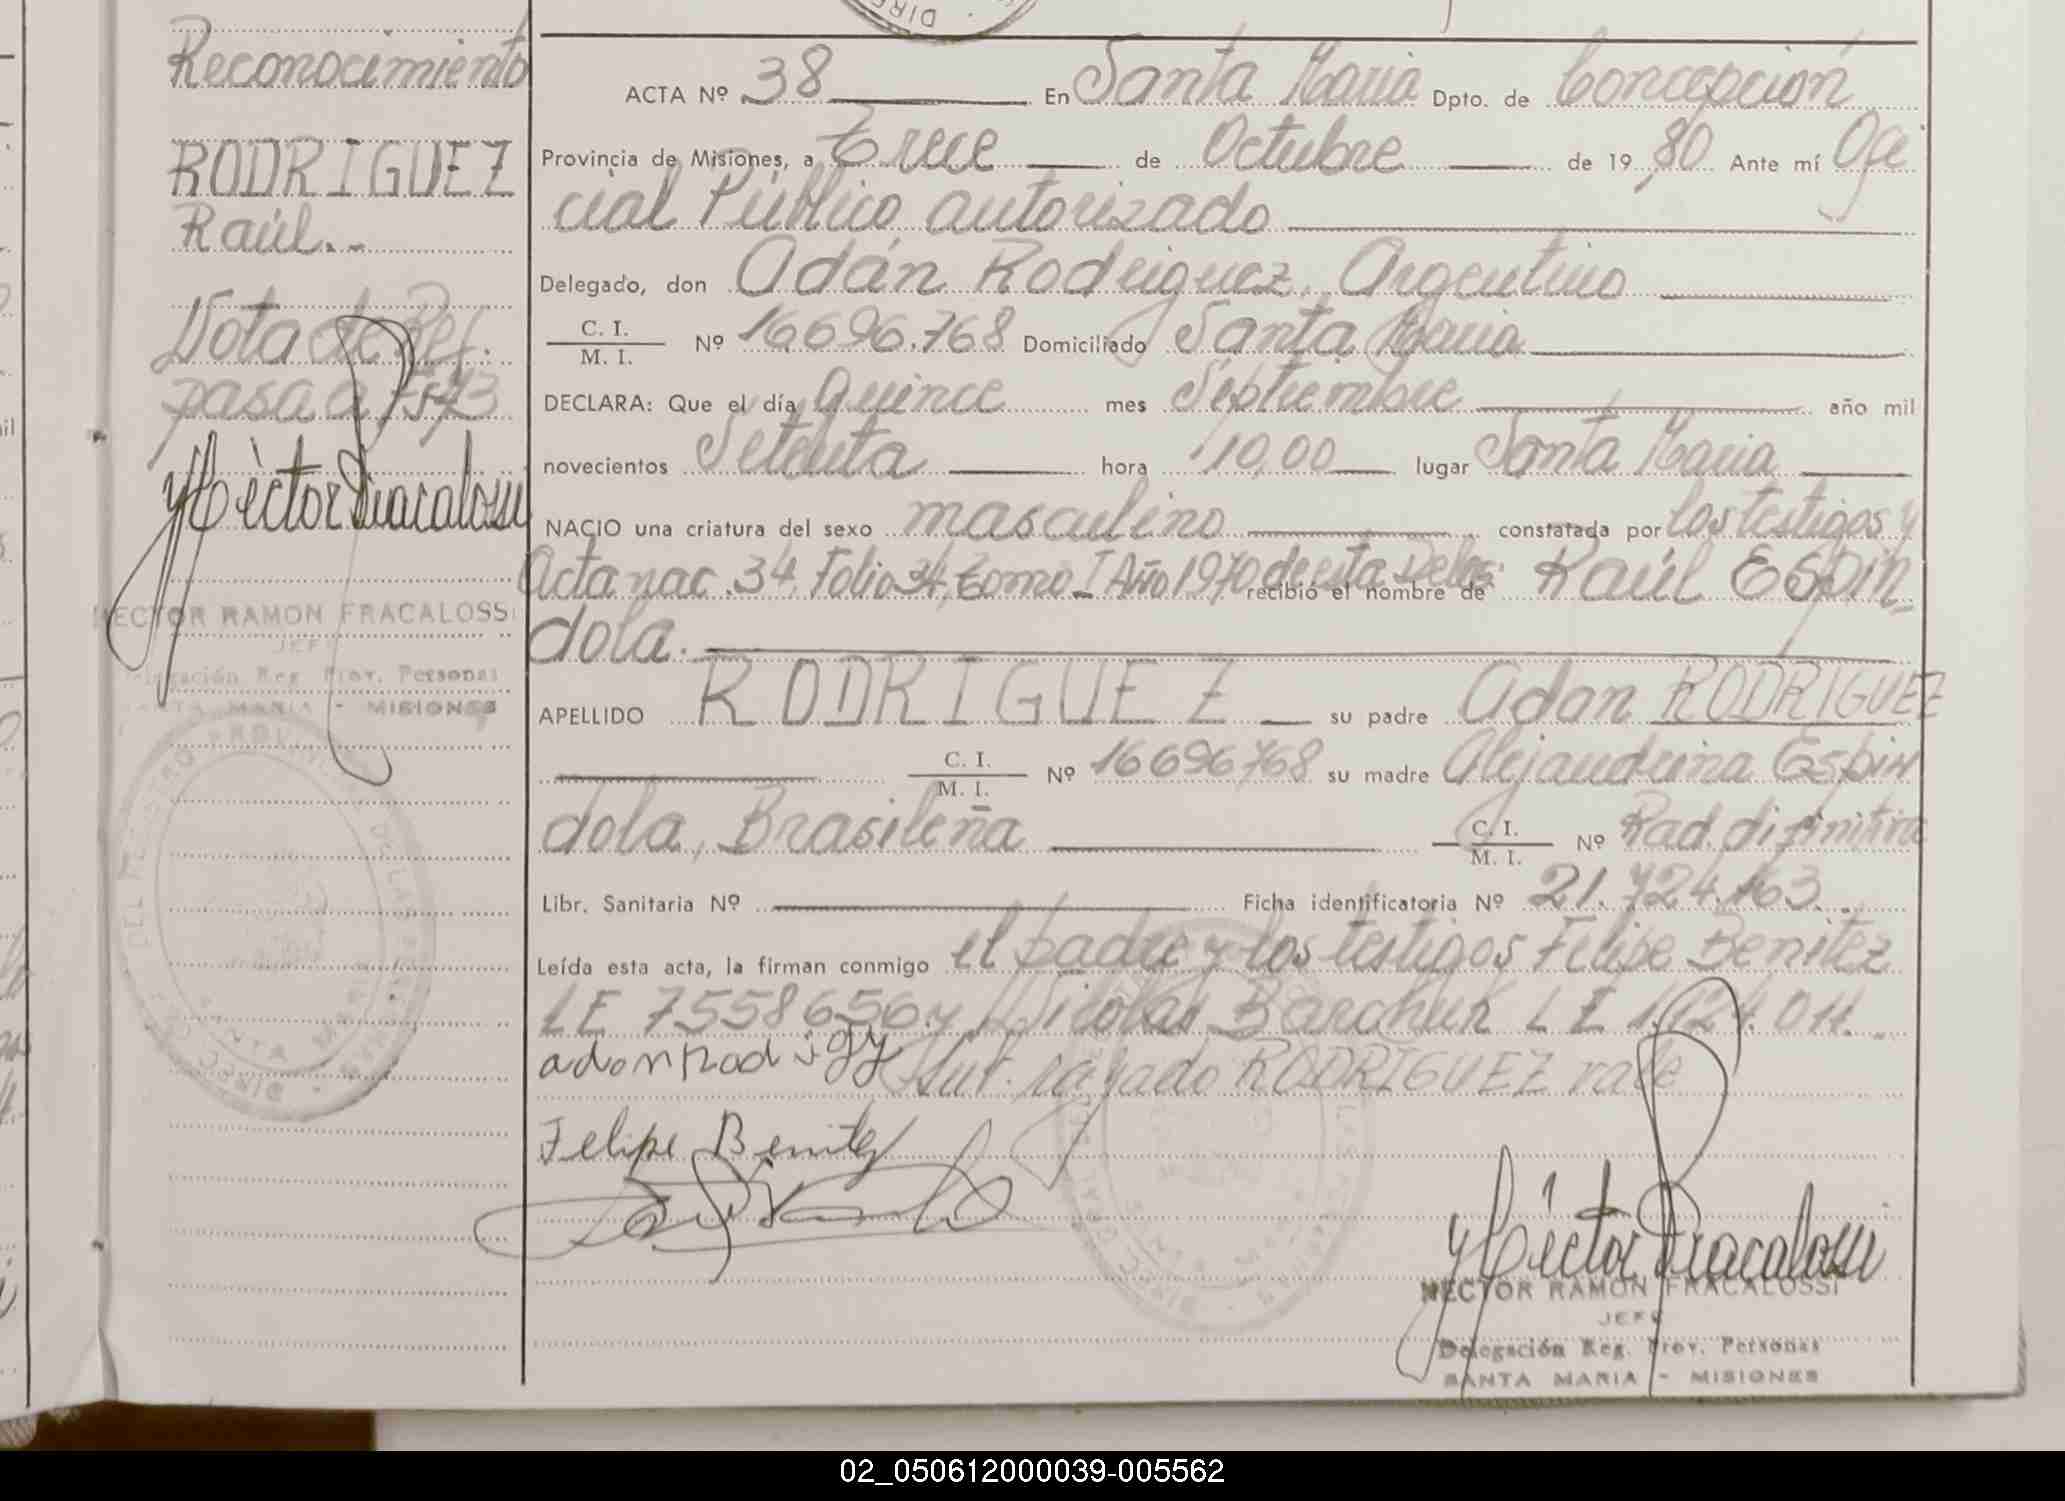 Reconocimiento
RODRIGUEZ
Raúl.-
Nota de Ref.
pasa a
Héctor Fracalossi
HECTOR RAMON FRACALOSSI
JEFE
Delegación Reg. Prov. Personas
SANTA MARIA - MISIONES
DIRE
ACTA Nº 38 En Santa Maria Dpto. de Concepción
Provincia de Misiones, a Trece de Octubre de 19 80 Ante mí Ofi
cial Público autorizado
Delegado, don Adán Rodriguez, Argentino
C. I.
M. I. Nº 16.696.768 Domiciliado Santa Maria
DECLARA: Que el día Quince mes Septiembre año mil
novecientos Setenta hora 10,00 lugar Santa Maria
NACIO una criatura del sexo masculino constatada por los testigos y
Acta nac. 34. Folio 34, Tomo I Año 1970 de esta Deleg. recibió el nombre de Raúl Espin
dola.
APELLIDO RODRIGUEZ su padre Adan RODRIGUEZ
C. I.
M. I. Nº 16696768 su madre Alejandrina Espin
dola, Brasileña C. I.
M. I. Nº Rad. difinitiva
Libr. Sanitaria Nº Ficha identificatoria Nº 21.724.163.
Leída esta acta, la firman conmigo el padre y los testigos Felipe Benitez
LE 7558656 y Nicolas Barchuk LE
adon Rod
rayado RODRIGUEZ vale
Felipe Benitez
Héctor Fracalossi
HECTOR RAMON FRACALOSSI
JEFE
Delegación Reg. Prov. Personas
SANTA MARIA - MISIONES
02_050612000039-005562